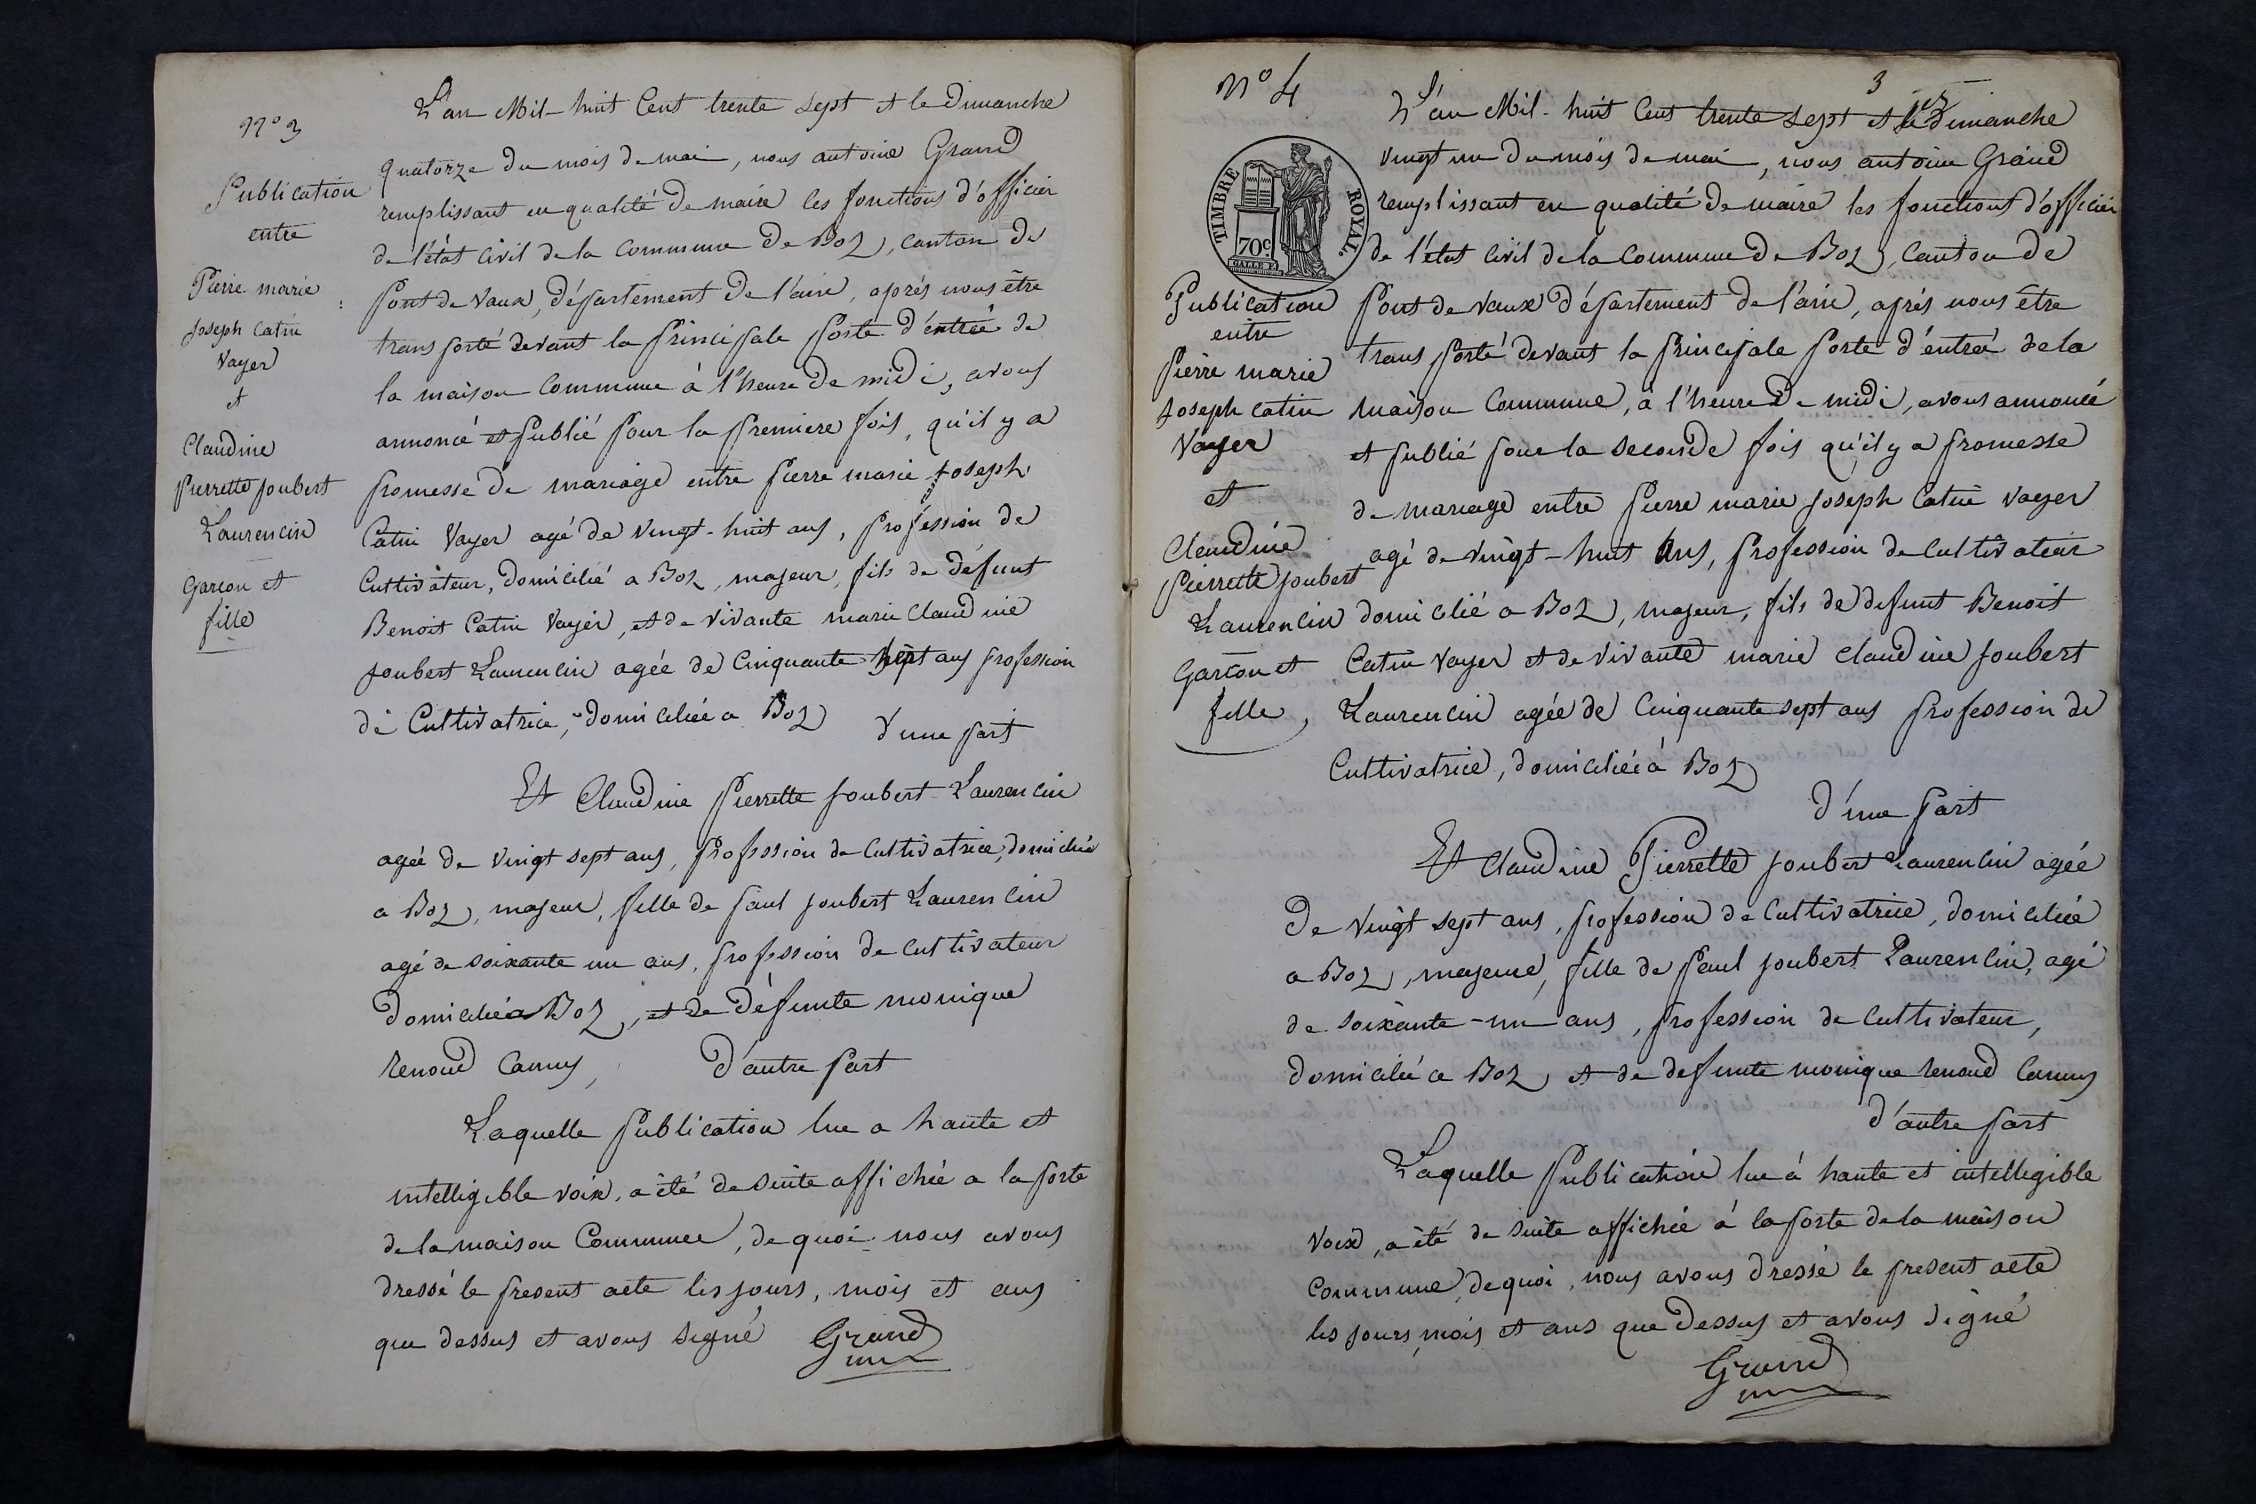 N° 3
Publication
entre
Pierre marie
Joseph Catin
Vayer
et
Claudine
Pierrette Joubert
Laurencin
Garcon et
fille
L'an Mil-huit Cent trente sept et le Dimanche
quatorze du mois de mai, nous antoine Grand
remplissant en qualité de maire les fonctions d'officier
de l'état Civil de la Commune de Boz, canton de
Pont de Vaux, département de l'ain, aprés nous être
transporté devant la principale porte d'entrée de
la maison Commune à l'heure de midi, avons
annoncé et publié pour la premiere fois, qu'il y a
promesse de mariage entre pierre marie Joseph
Catin Vayer agé de vingt-huit ans, profession de
Cultivateur, domicilié a Boz, majeur, fils de défunt
Benoit Catin Vayer, et de vivante marie Claudine
Joubert Laurencin agée de Cinquante sept ans profession
de Cultivatrice, domiciliée a Boz
d'une part
Et Claudine Pierrette Joubert-Laurencin
agée de vingt sept ans, profession de Cultivatrice, domiciliée
a Boz, majeur, fille de paul Joubert Laurencin
agé de soixante un ans, profession de cultivateur
domicilié a Boz, et de défunte monique
renoud Camus, d'autre part
Laquelle publication lue a haute et
intelligible voix, a été de suite affichée a la porte
de la maison Commune, de quoi nous avons
dressé le present acte les jours, mois et ans
que dessus et avons signé Grand
N° 4
3
TIMBRE ROYAL.
70c.
Publication
entre
Pierre marie
Joseph Catin
Vayer
et
Claudine
Pierrette Joubert
Laurencin
Garcon et
fille,
L'an Mil-huit Cent trente sept et le Dimanche
vingt un du mois de mai, nous antoine Grand
remplissant en qualité de maire les fonctions d'officier
de l'état Civil de la Commune de Boz, Canton de
Pont de Vaux département de l'ain, aprés nous être
transporté devant la principale porte d'entrée de la
maison Commune, à l'heure de midi, avons annoncé
et publié pour la seconde fois qu'il y a promesse
de mariage entre pierre marie Joseph Catin Vayer
agé de vingt-huit ans, profession de Cultivateur
domicilié a Boz, majeur, fils de defunt Benoit
Catin Vayer et de vivante marie Claudine Joubert
Laurencin agée de Cinquante sept ans profession de
Cultivatrice, domiciliée à Boz
d'une part
Et Claudine Pierrette Joubert Laurencin agée
de vingt sept ans, profession de Cultivatrice, domiciliée
a Boz, majeure, fille de paul Joubert Laurencin, agé
de soixante-un ans, profession de Cultivateur,
domicilié a Boz et de defunte monique renoud Camus
d'autre part
Laquelle publication lue à haute et intelligible
voix, a été de suite affichée à la porte de la maison
Commune, de quoi, nous avons dressé le present acte
les jours, mois et ans que dessus et avons signé
Grand